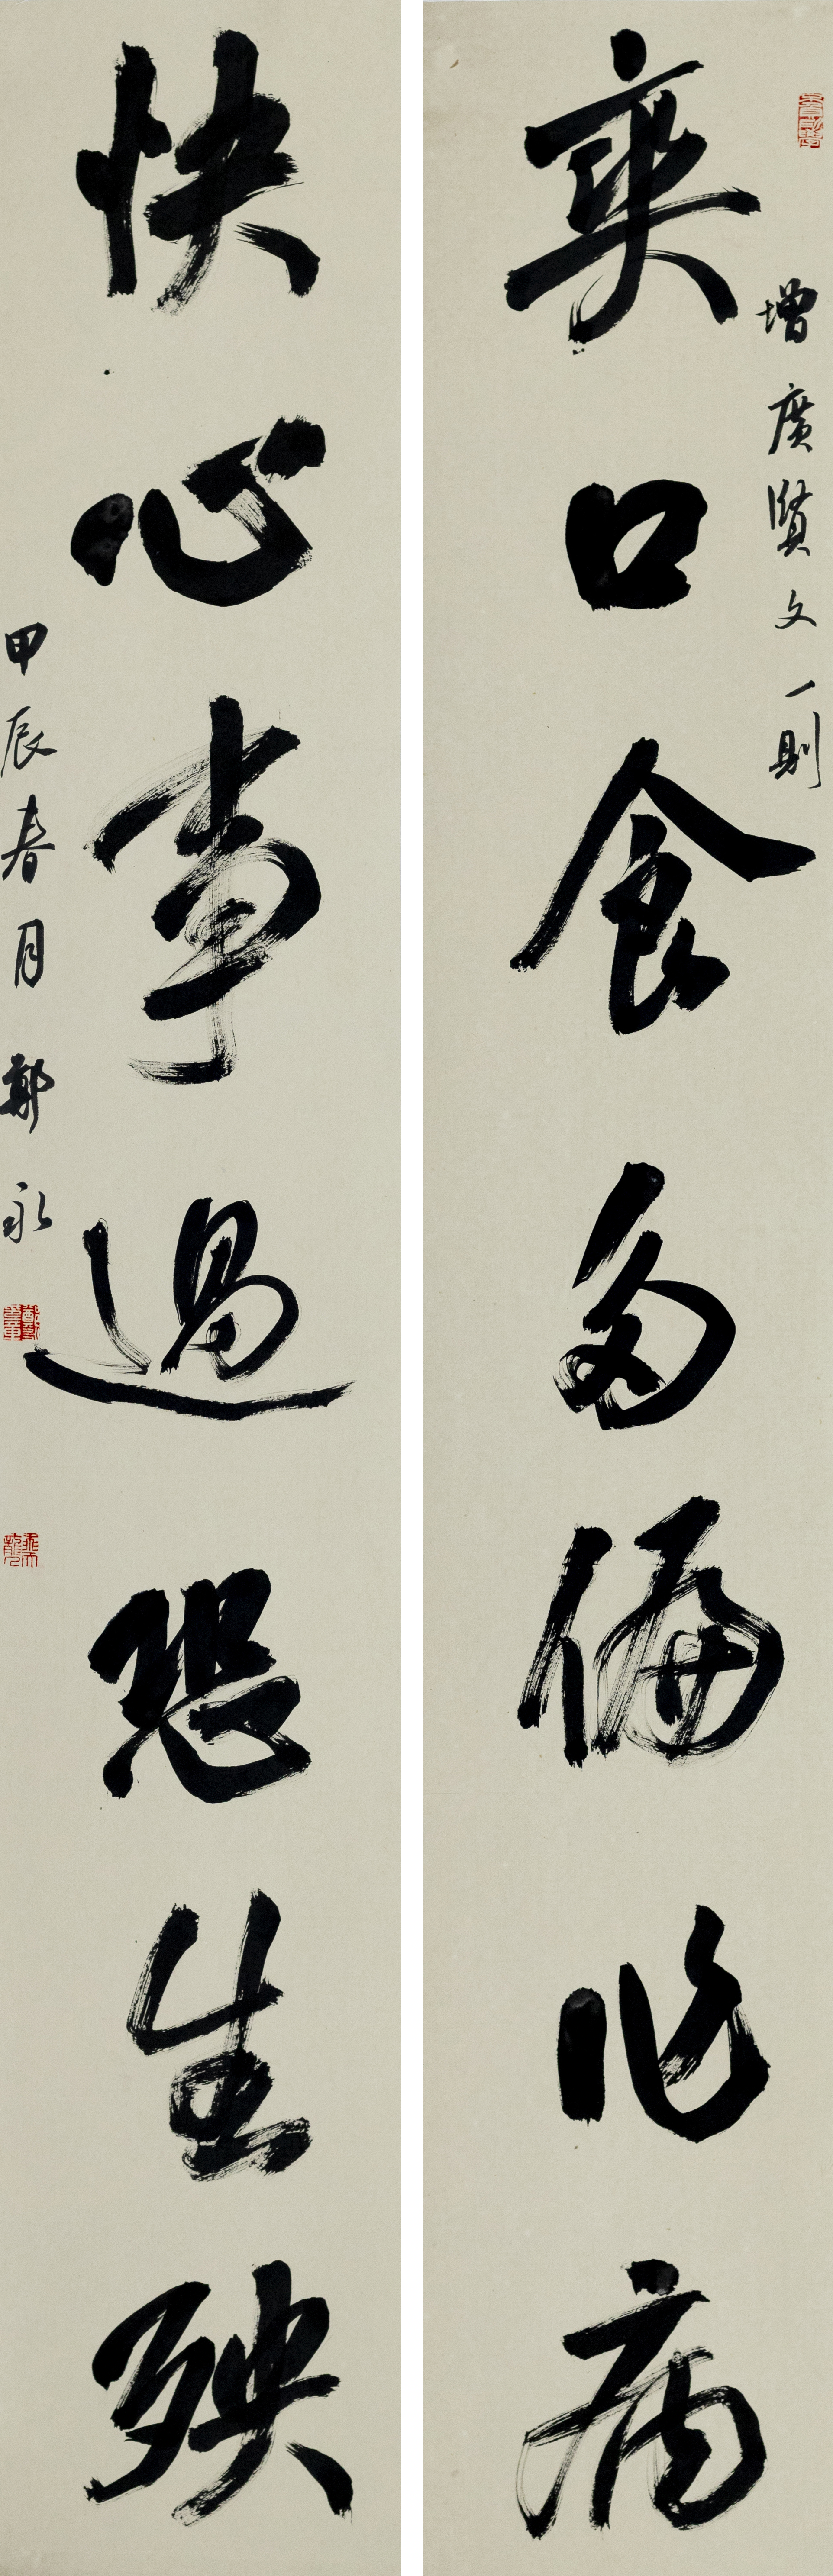 增廣賢文一則
爽口食多偏作病
快心事過恐生殃
甲辰春月鄭永